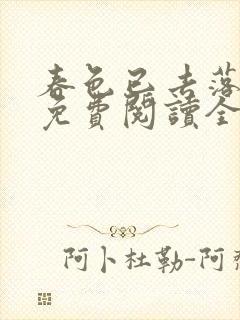 春色已去落
免費閱讀全
阿卜杜勒-阿